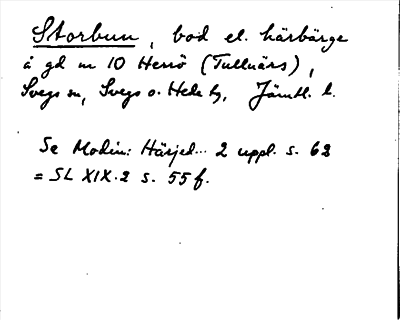 Storbun, bod el. härbärge
å gd nr 10 Herrö (Tullnärs),
Svegs sn, Svegs o. Hede tg, Jämtl. l.
Se Modin: Härjed... 2 uppl. s. 62
= SL XIX.2 s. 55 f.